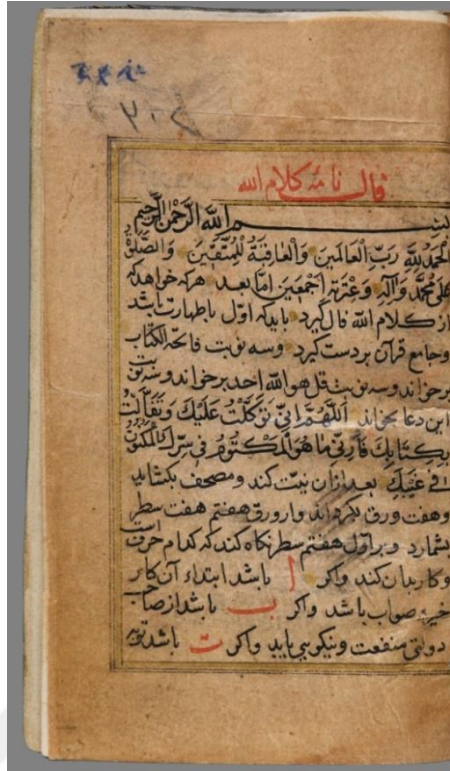 ۲۰۲
فالنامهٔ کلام الله
بسم الله الرحمن الرحیم
الْحَمْدُ لِلَّهِ رَبِّ الْعَالَمِينَ وَالْعَاقِبَةُ لِلْمُتَّقِينَ وَالصَّلٰوةُ
عَلَى مُحَمَّدٍ وَآلِهِ وَعِتْرَتِهِ اَجْمَعِينَ امّا بعد هرکه خواهد که
از کلام الله فال کیرد باید که اوّل باطهارت باشد
و جامع قرآن بردست کیرد و سه نوبت فاتحة الکتاب
برخواند و سه نوبت قل هو الله احد برخواند و سه نوبت
این دعا بخواند اَللّٰهُمَّ اِنِّي تَوَكَّلْتُ عَلَيْكَ وَتَفَأَّلْتُ
بِكِتَابِكَ فَأَرِنِي مَا هُوَ الْمَكْتُومُ فِي سِرِّكَ الْمَكْنُونِ
فِي غَيْبِكَ بعد ازان نیّت کند و مصحف بکشاید
و هفت ورق بکرداند و از ورق هفتم هفت سطر
بشمارد و بر اوّل هفتم سطر نکاه کند که کدام حرف است
و کار بدان کند و اکر ا باشد ابتداء آن کار
خیر و صواب باشد و اکر ب باشد از صاحب
دولتی منفعت و نیکویی یابد و اکر ت باشد توبه